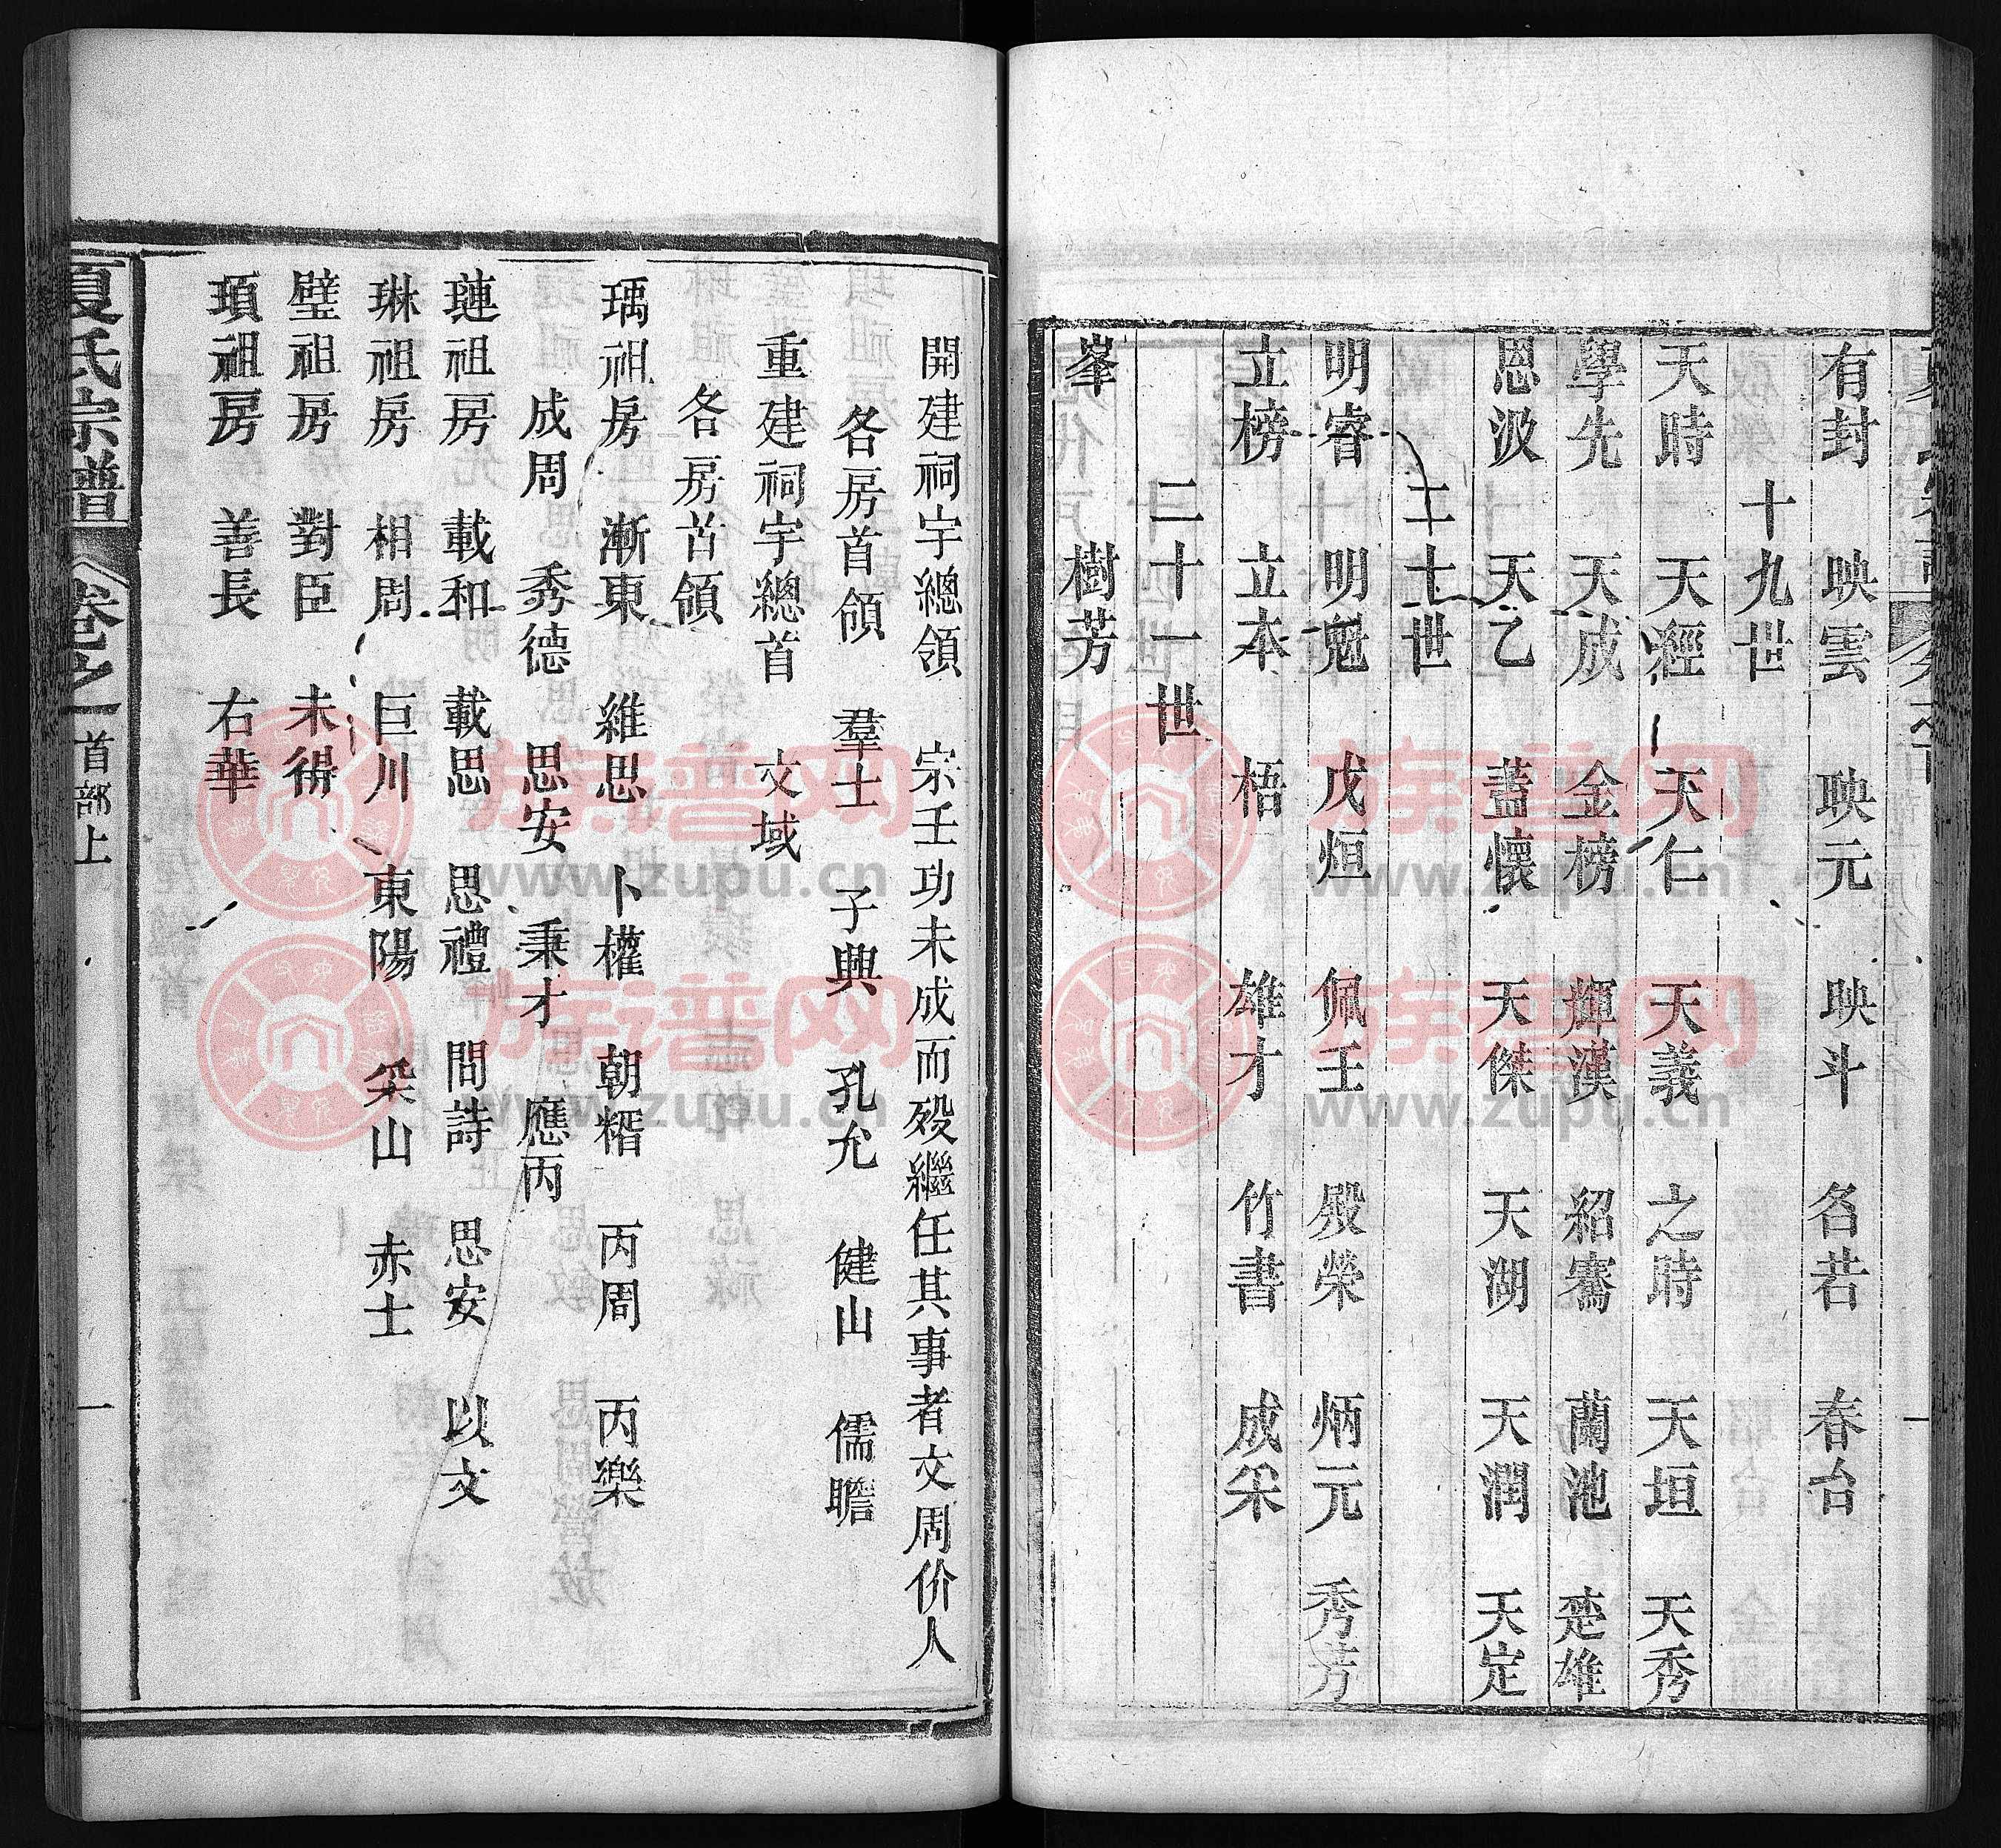 有封 映雲 映元 映斗 名若 春台
十九世
天時 天經 天仁 天義 之時 天垣 天秀
學先 天成 金榜 輝漢 紹騫 蘭池 楚雄
恩汲 天乙 蓋懷 天傑 天湖 天潤 天定
二十世
明睿 明魁 戊烜 佩壬 殿榮 炳元 秀芳
立榜 立本 梧 雄才 竹書 成采
二十一世
峯 樹芳
開建祠宇總領 宗壬功未成而殁繼任其事者文周价人
各房首領 羣士 子興 孔允 健山 儒瞻
重建祠宇總首 文域
各房首領
瑀祖房 漸東 維思 卜權 朝楷 丙周 丙樂
成周 秀德 思安 秉才 應丙
璉祖房 載和 載思 思禮 問詩 思安 以文
琳祖房 相周 巨川 東陽 采山 赤士
璧祖房 對臣 未得
頊祖房 善長 右華
夏氏宗譜 卷之一 首部上 一
族谱网
www.zupu.cn
族谱网
www.zupu.cn
族谱网
www.zupu.cn
族谱网
www.zupu.cn